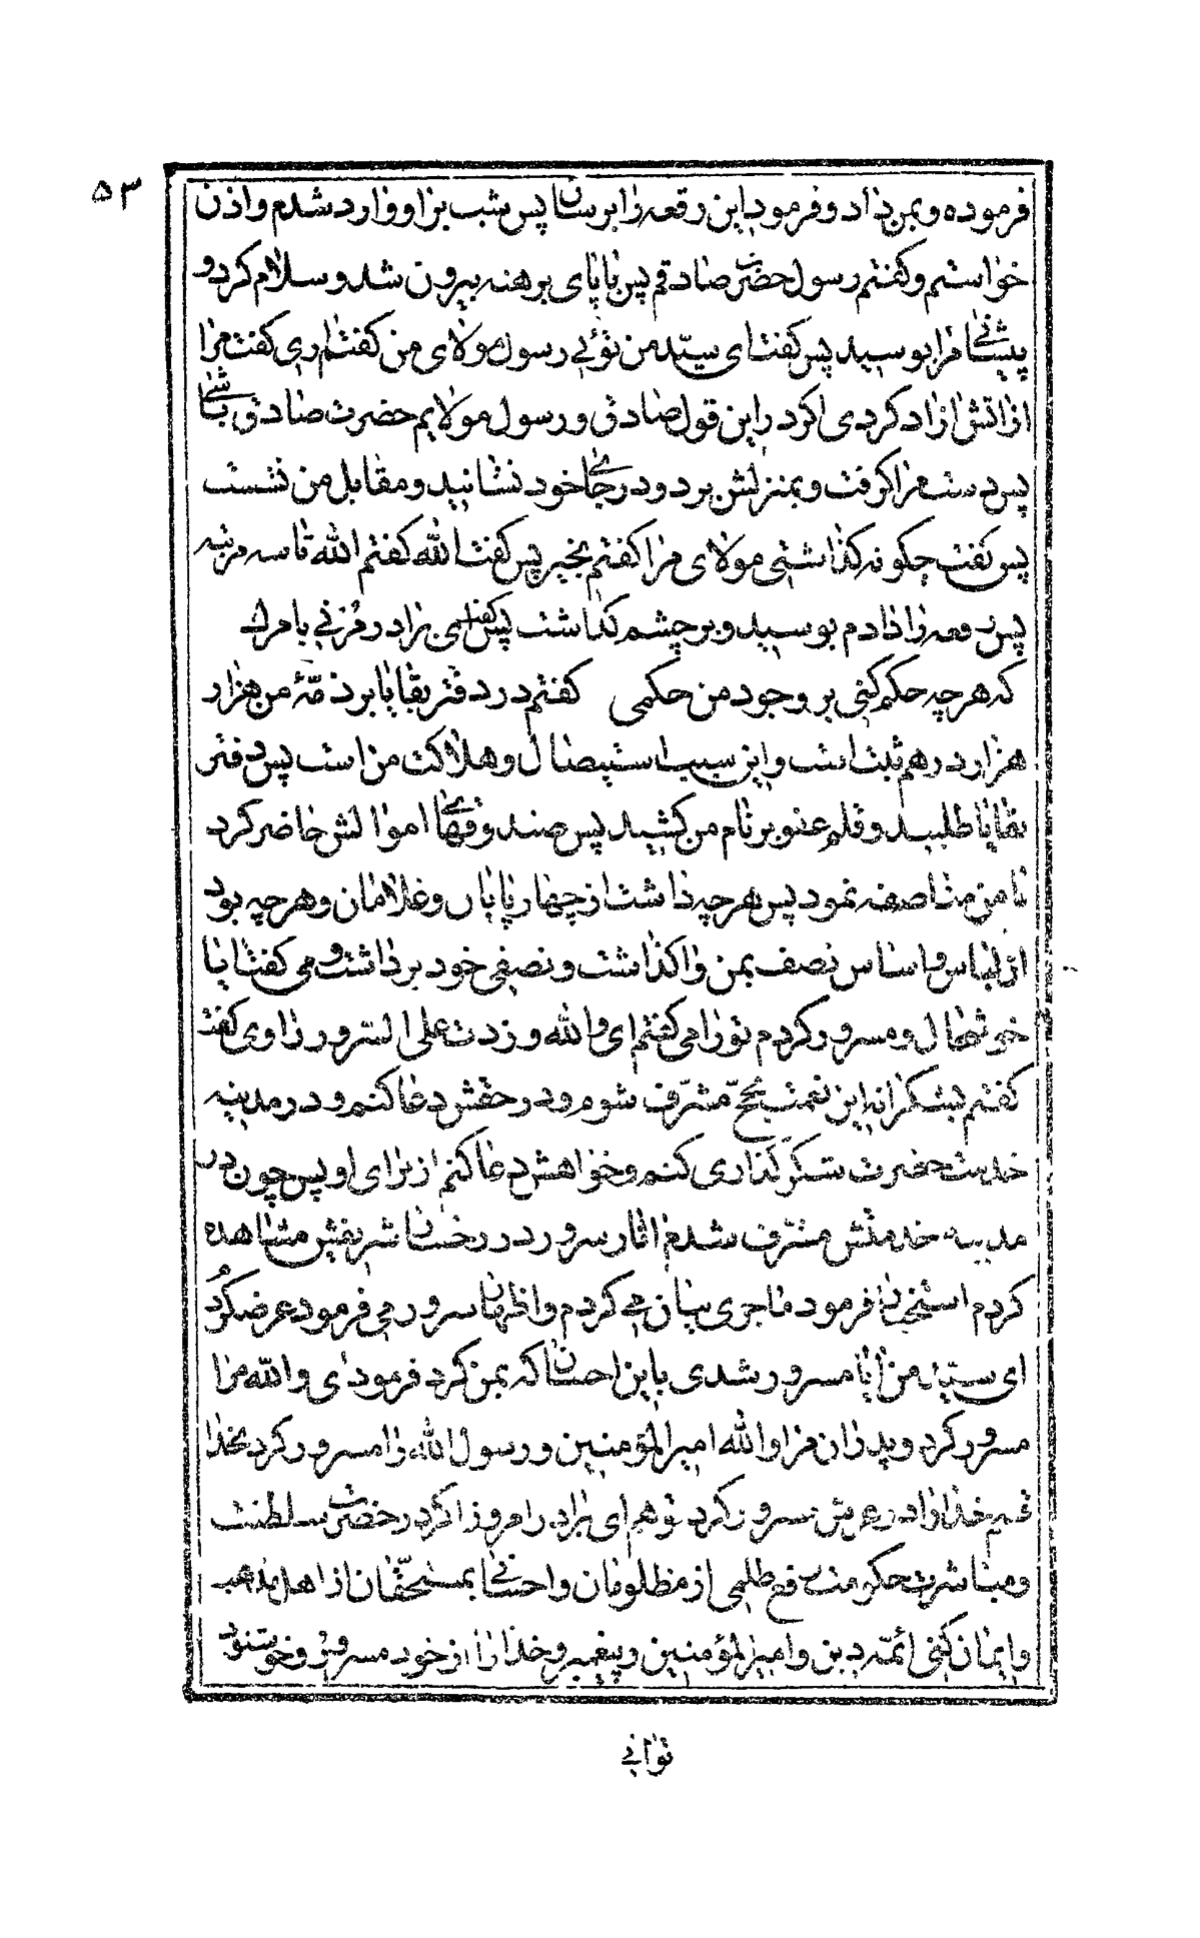 ۵۳
فرموده و بمن داد و فرمود این رقعه را برسان پس شب بر او وارد شدم و اذن
خواستم و گفتم رسول حضرت صادقم پس با پای برهنه بیرون شد و سلام کرد و
پیشانی مرا بوسید پس گفت ای سید من توئی رسول مولای من گفتم اری گفت مرا
از اتش ازاد کردی اگر در این قول صادق و رسول مولایم حضرت صادق باشی
پس دست مرا گرفت و بمنزلش برد و در جای خود نشانید و مقابل من نشست
پس گفت چگونه گذاشتی مولای مرا گفتم بخیر پس گفت الله گفتم الله تا سه مرتبه
پس رقعه را دادم بوسید و بر چشم گذاشت پس گفت ای برادر من بامرت
که هر چه حکم کنی بر وجود من حکمی گفتم در دفتر بقایا بر ذمّهٔ من هزار
هزار درهم ثبت است و این سبب استیصال و هلاکت من است پس دفتر
بقایا طلبید و قلم عفو بر نام من کشید پس صندوقهای اموالش حاضر کرد
با من مناصفه نمود پس هر چه داشت از چهارپایان و غلامان و هر چه بود
از لباس و اساس نصف بمن واگذاشت و نصفی خود برداشت و می گفت ایا
خوشحال و مسرور کردم تو را می گفتم ای والله و زدت علی السرور راوی گفت
گفتم بشکرانه این نعمت بحجّ مشرّف شوم و در حقش دعا کنم و در مدینه
خدمت حضرت شکرگذاری کنم و خواهش دعا کنم از برای او پس چون در
مدینه خدمتش مشرّف شدم اثار سرور در رخسار شریفش مشاهده
کردم استخبار فرمود ماجری بیان می کردم و اظهار سرور می فرمود عرض کردم
ای سید من ایا مسرور شدی باین احسان که بمن کرد فرمود ای والله مرا
مسرور کرد و پدران مرا والله امیرالمؤمنین و رسول الله را مسرور کرد بخدا
قسم خدا را در عرش مسرور کرد تو هم ای برادر امروز اگر در حضرت سلطنت
و مباشرت حکومت رفع ظلمی از مظلومان و احسانی بمستحقّان از اهل مذهب
و ایمان کنی ائمّه دین و امیرالمؤمنین و پیغمبر و خدا را از خود مسرور و خوشنود
توانی